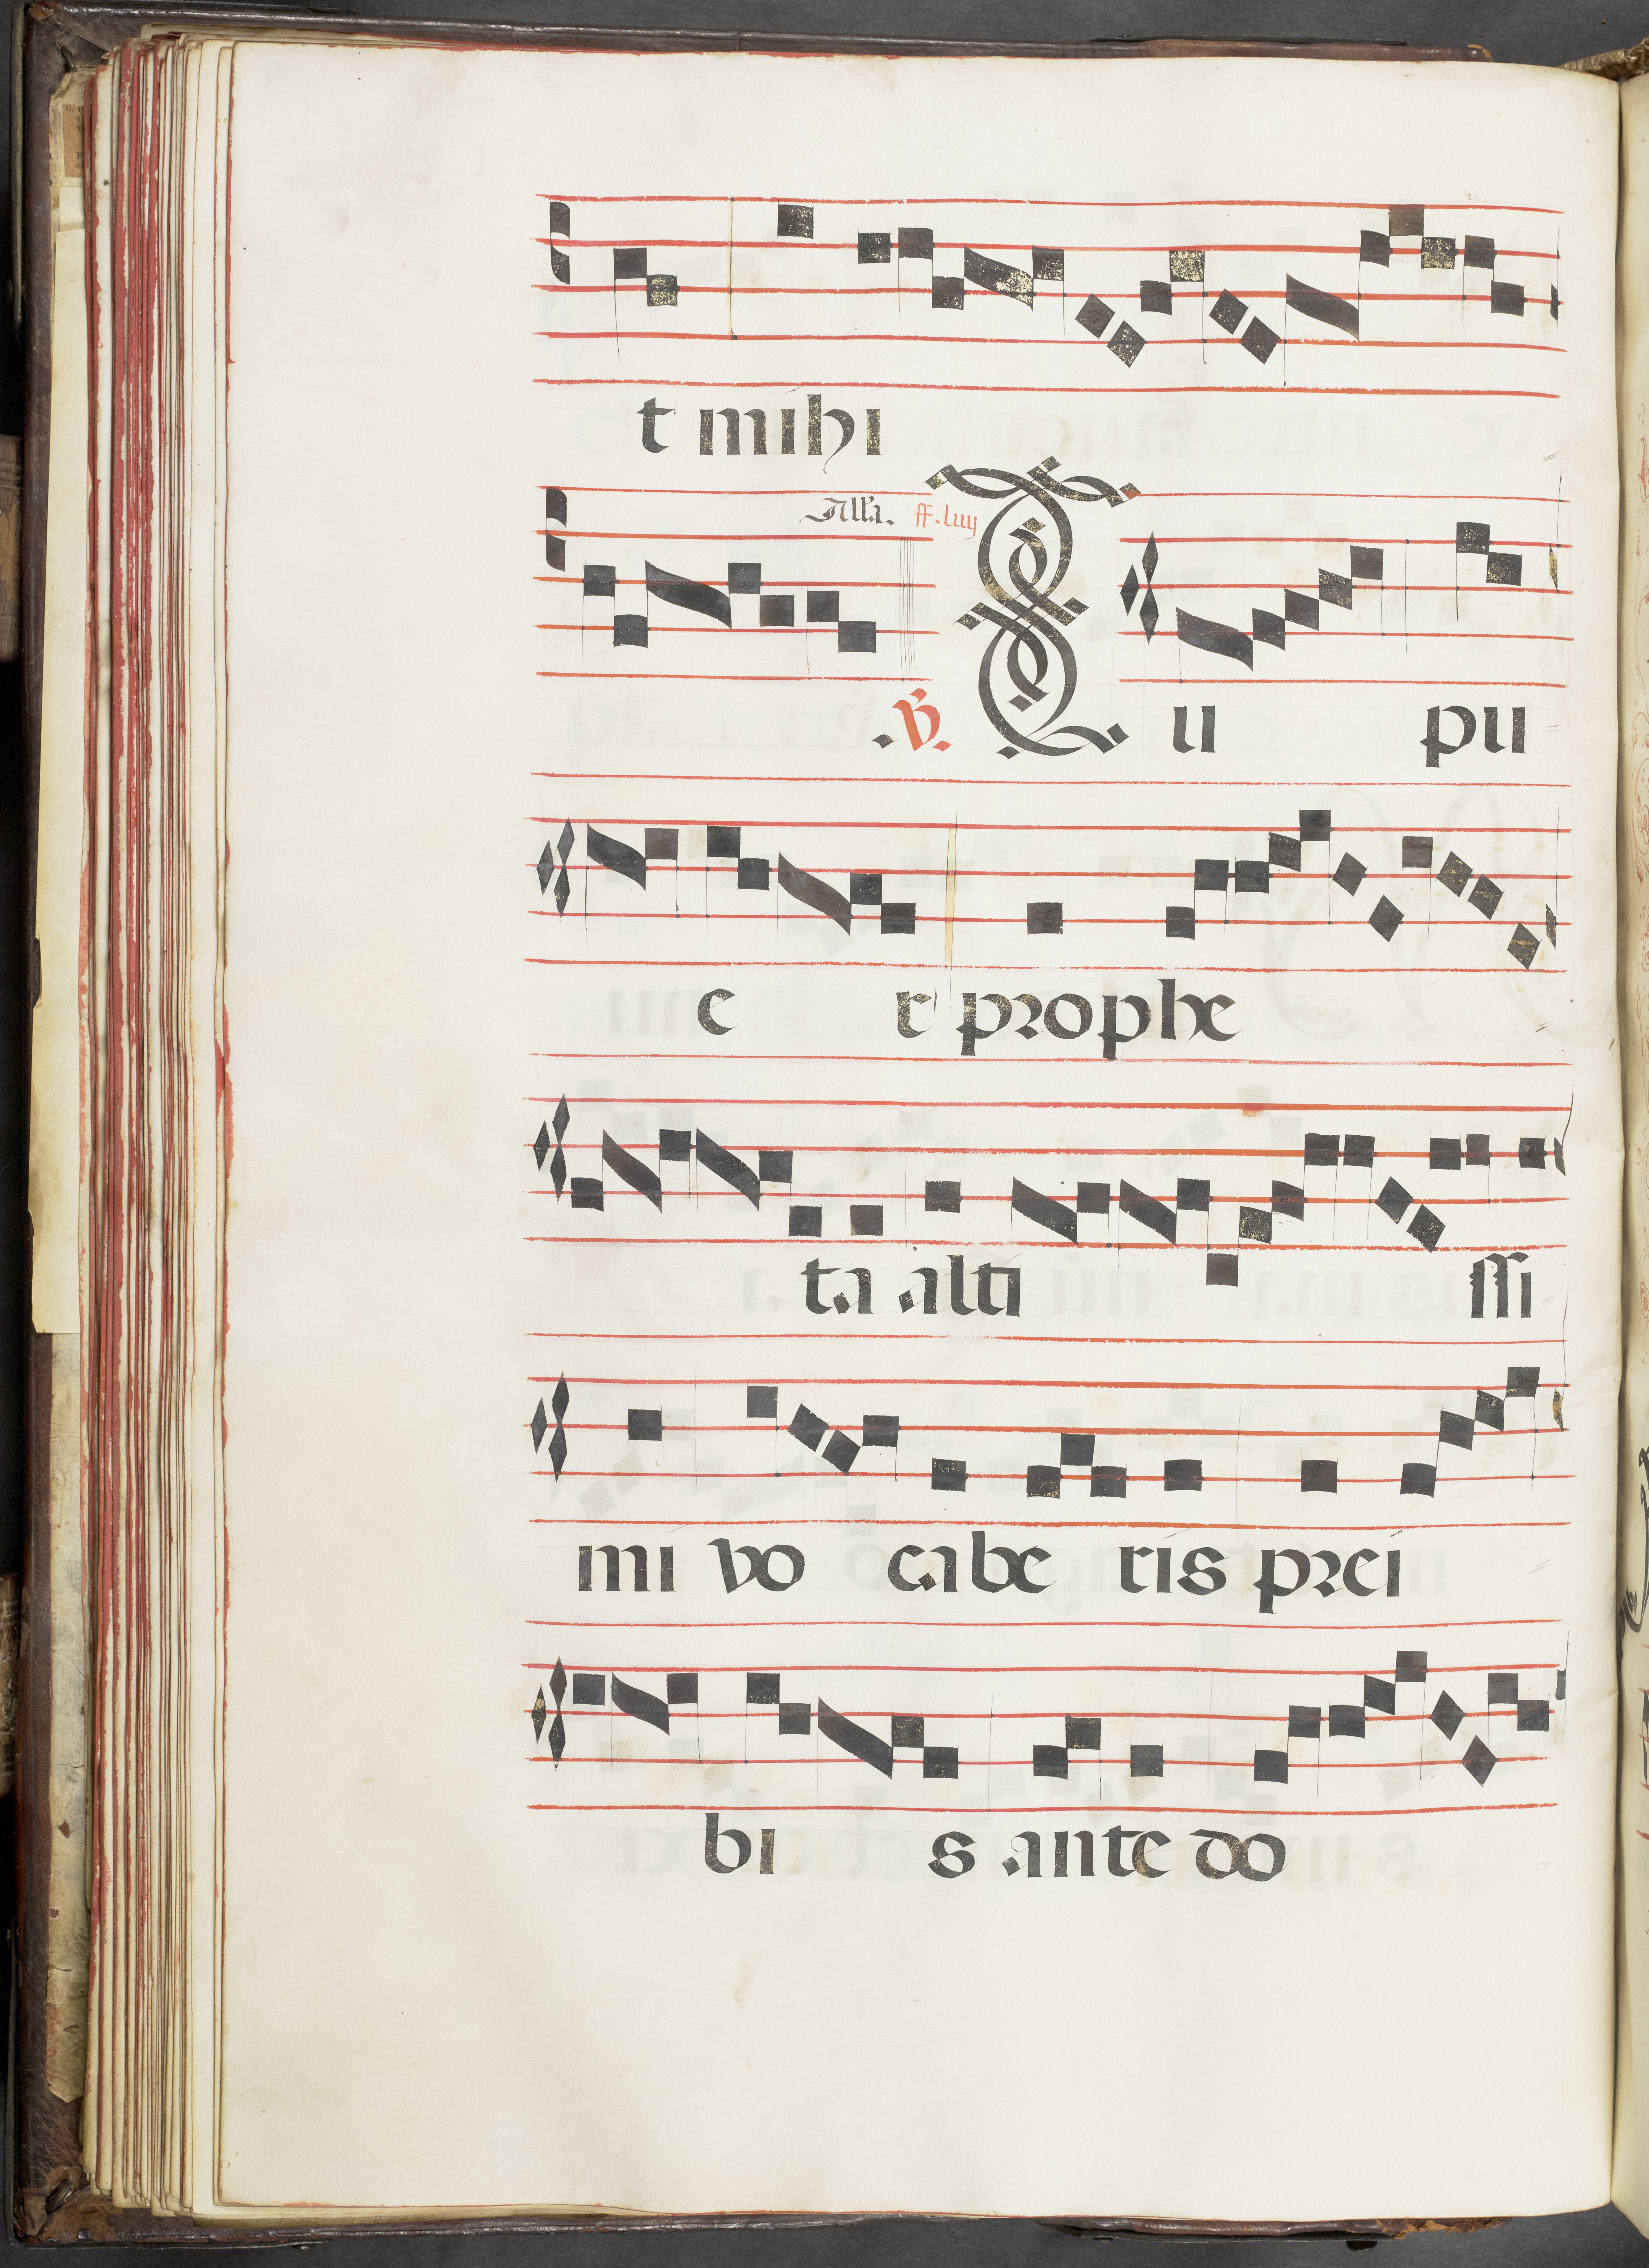 t mihi
All'a. ff. luij
.V. Tu pu
e r prophe
ta alti ssi
mi vo cabe ris prei
bi s ante do